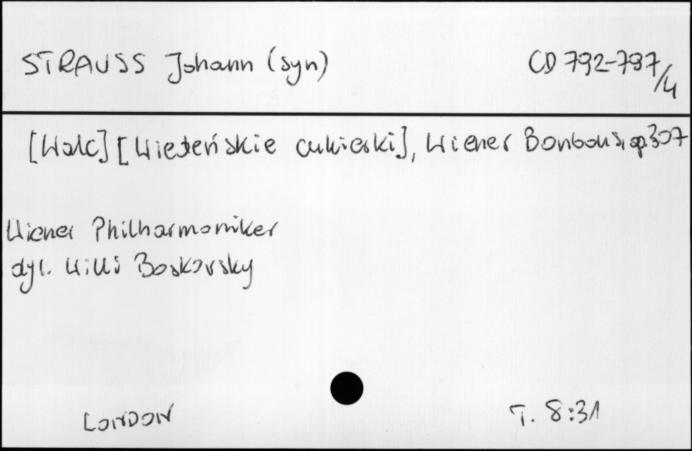 STRAUSS Johann (syn) CD 792-797/4
[Walc] [Wiedeńskie cukierki], Wiener Bonbons, op 307
Wiener Philharmoniker
dyr. Willi Boskovsky
LONDON T. 8:31